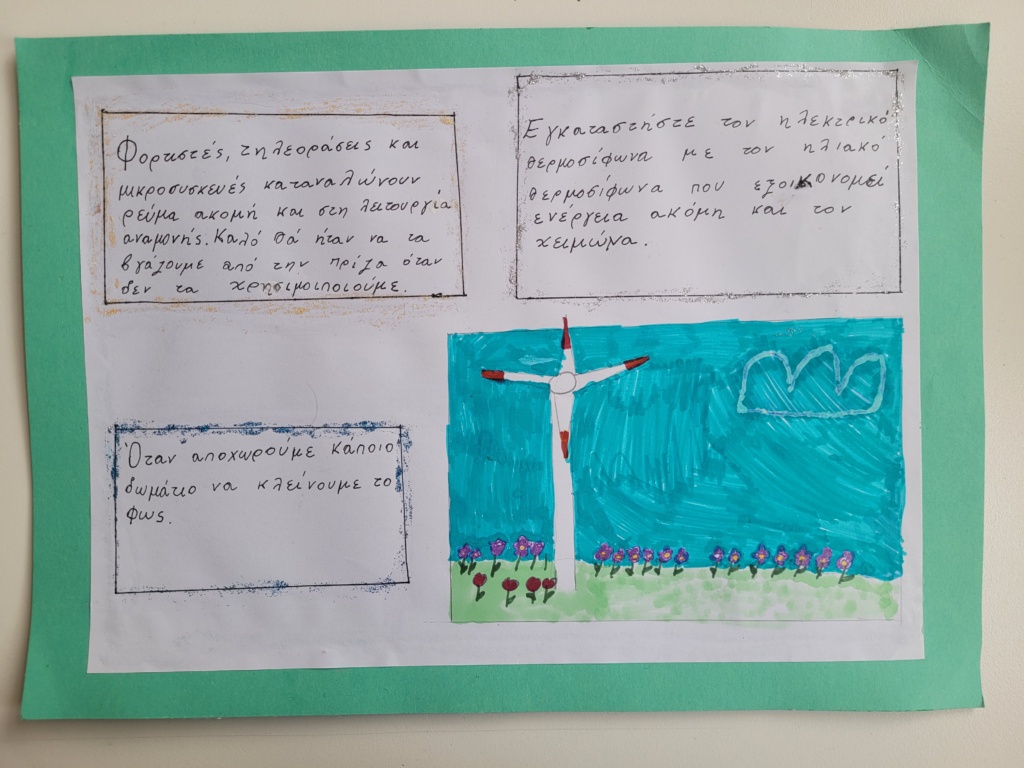 Φορτιστές, τηλεοράσεις και
μικροσυσκευές καταναλώνουν
ρεύμα ακομή και στη λειτουργία
αναμονής. Καλό θά ήταν να τα
βγάζουμε από την πρίζα όταν
δεν τα χρησιμοιποιούμε.
Εγκαταστήστε τον ηλεκτρικό
θερμοσίφωνα με τον ηλιακό
θερμοσίφωνα που εξοικονομεί
ενέργεια ακόμη και τον
χειμώνα.
Όταν αποχωρούμε κάποιο
δωμάτιο να κλείνουμε το
φως.